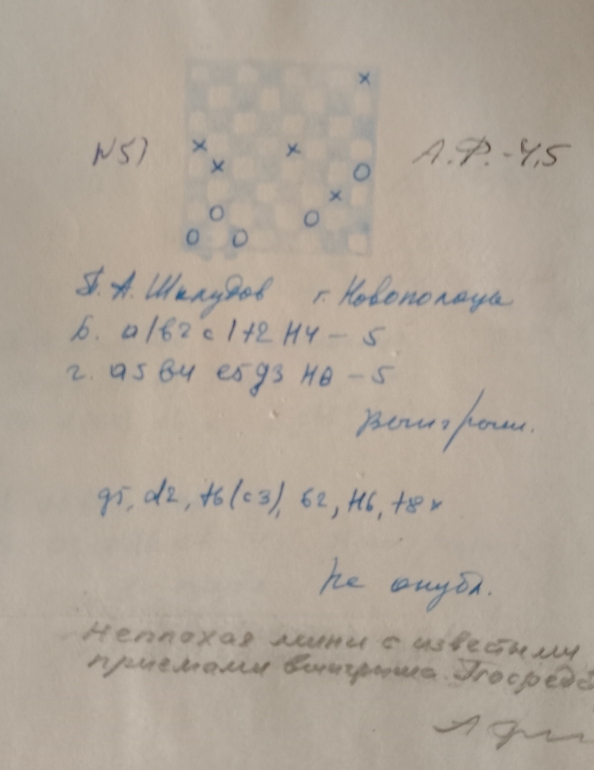 N57 А.Ф.-4,5
А. Шклудов г. Новополоцк
б. a1 b2 c1 f2 H4 - 5
г. a5 b4 e5 g3 H8 - 5
выигрыш.
g5, d2, f6 (c3), b2, H6, f8 x
не опубл.
Неплохая мини с известными
приемами выигрыша.